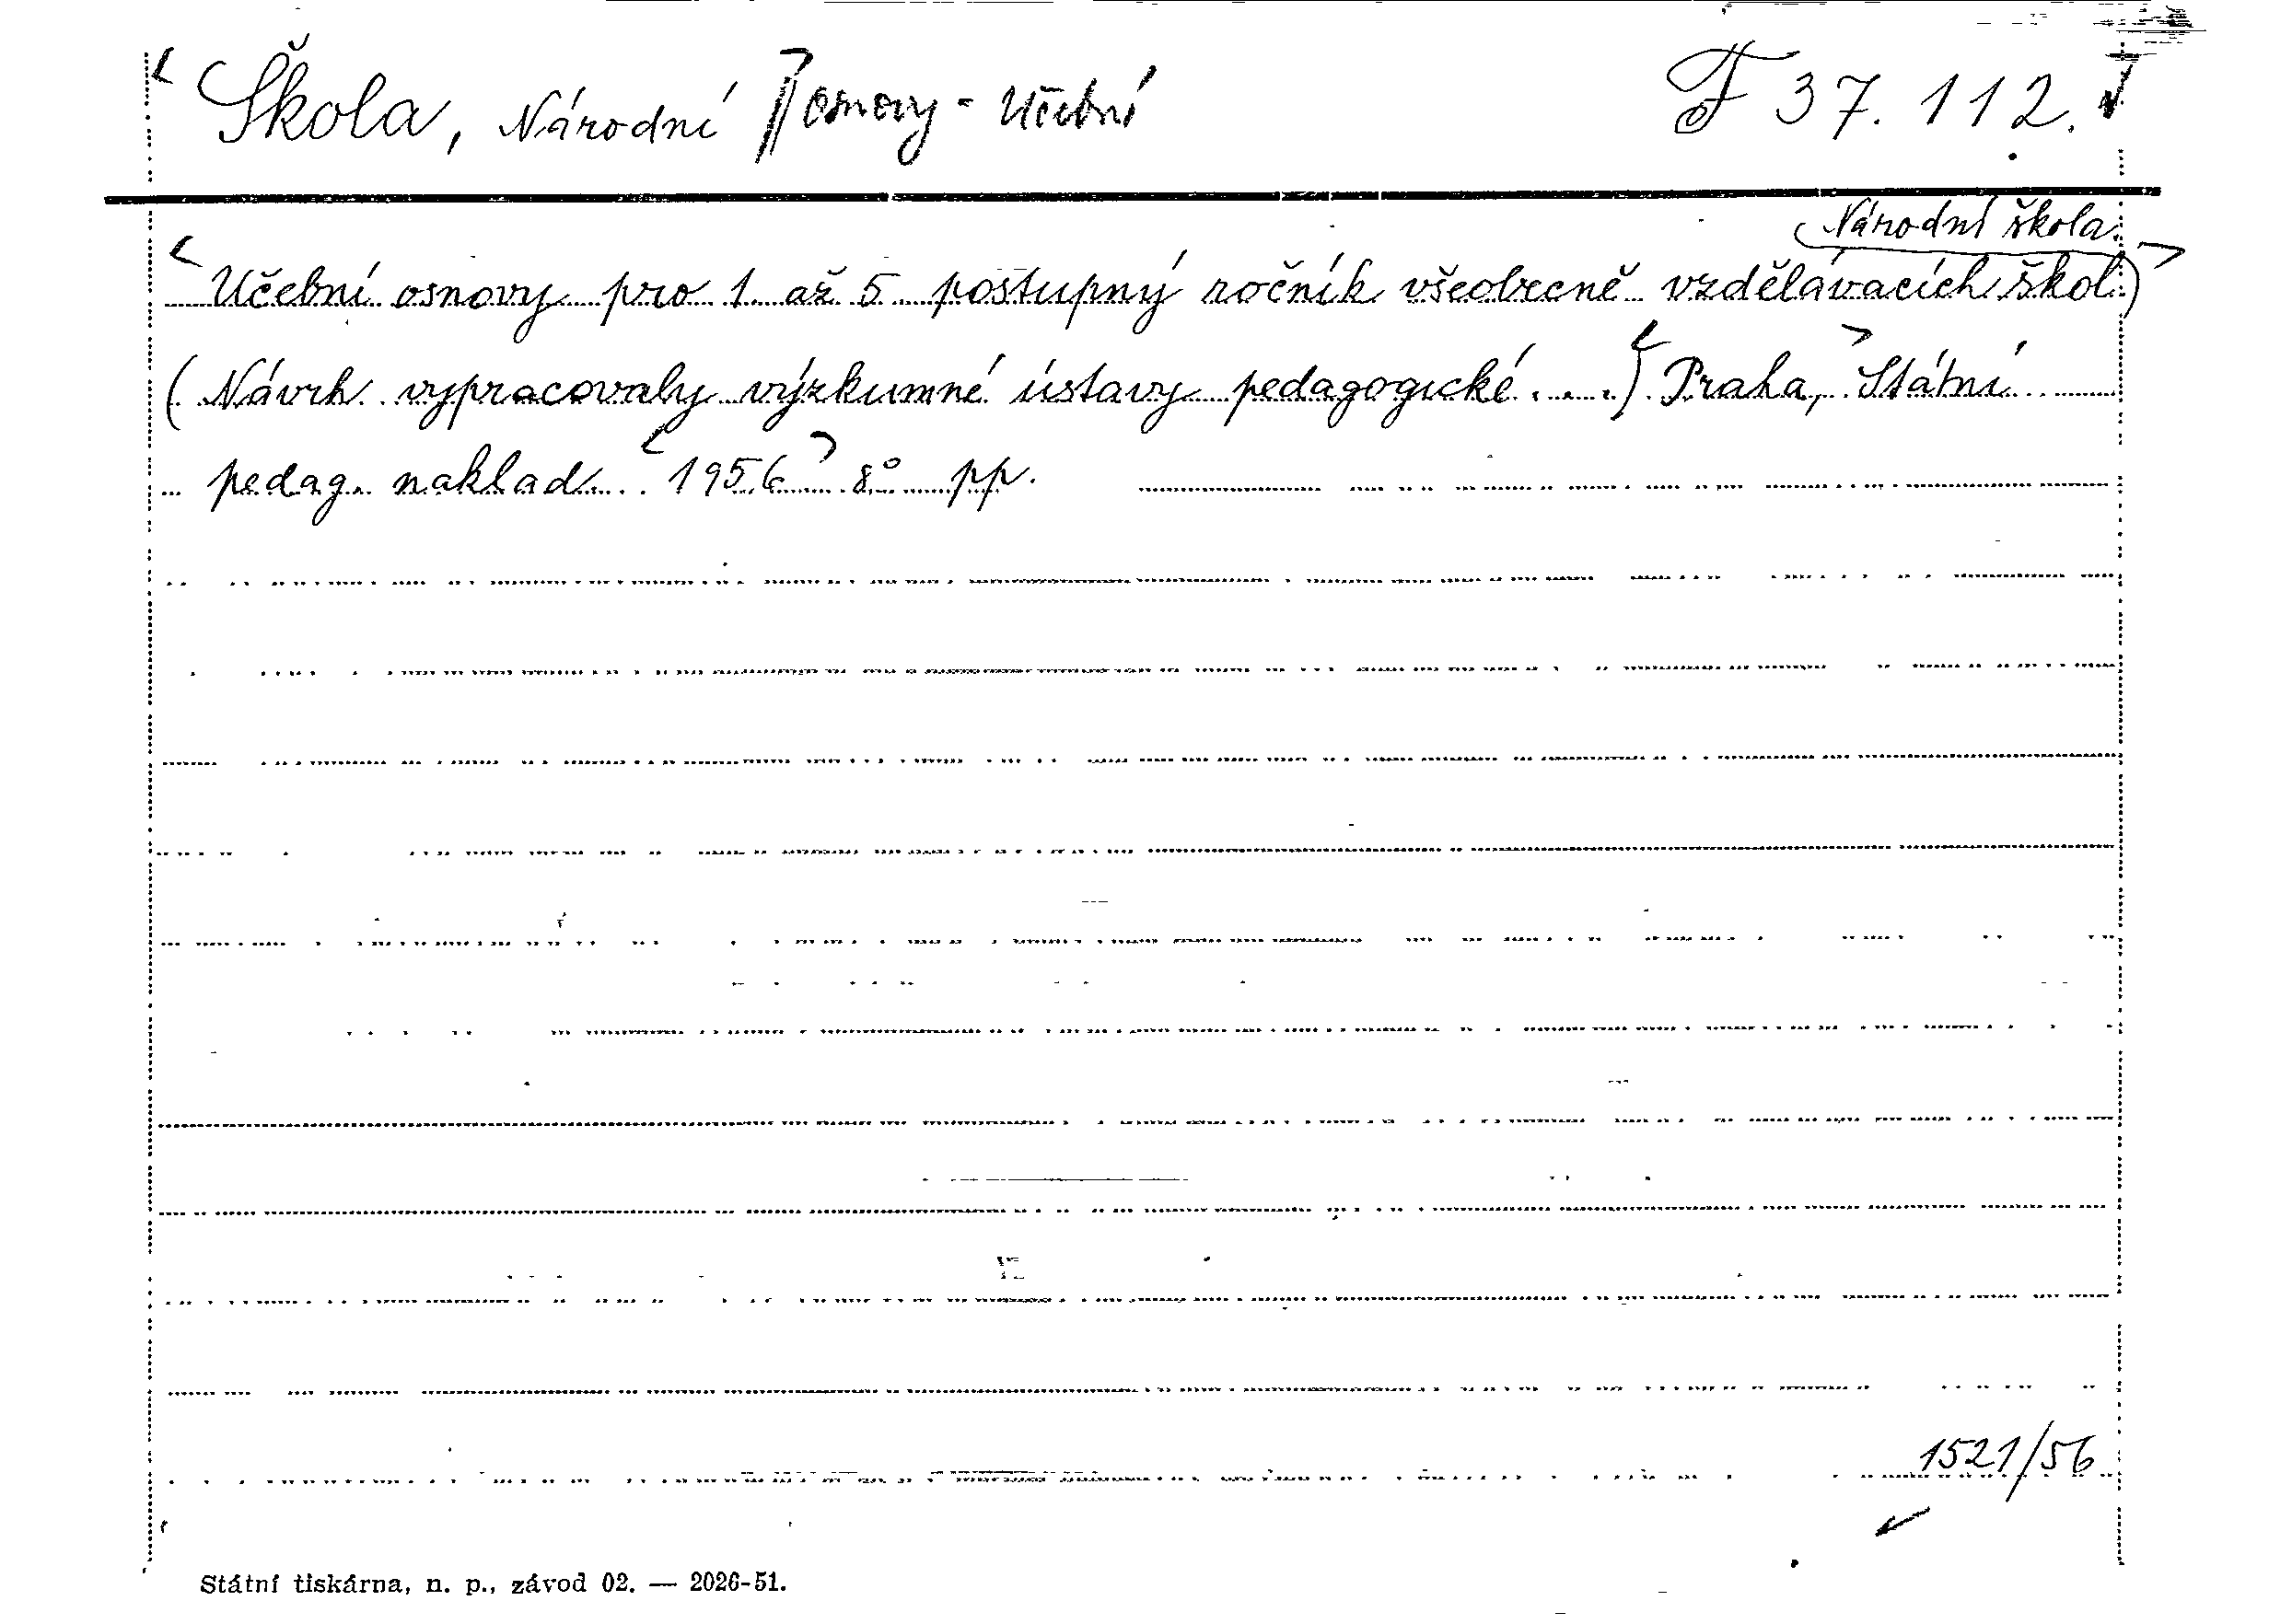 Škola, Národní // osnovy - Učební F 37.112.
(Národní škola.
Učební osnovy pro 1. až 5 postupný ročník všeobecně vzdělávacích škol.)
(Návrh vypracovaly výzkumné ústavy pedagogické....) Praha, Státní
pedag. naklad. 1956 8° pp.
1521/56
Státní tiskárna, n. p., závod 02. — 2026-51.